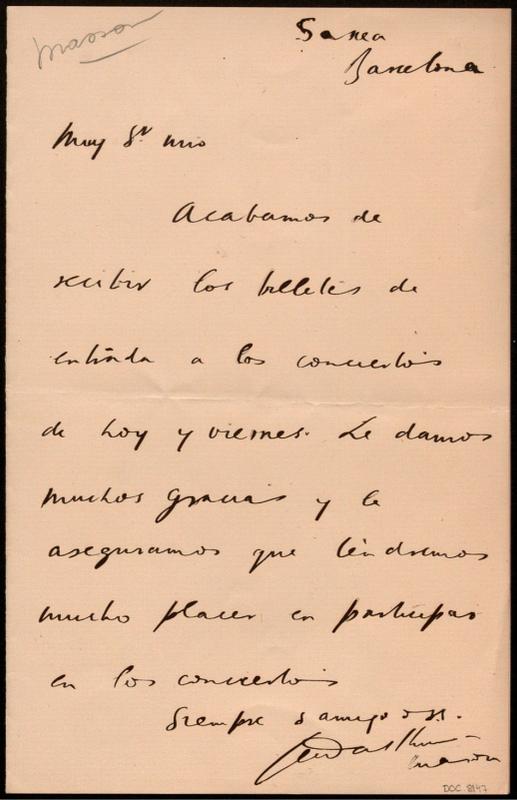 Masson
Sarria
Barcelona
Muy Sr mio
Acabamos de
recibir los billetes de
entrada a los conciertos
de hoy y viernes. Le damos
muchos gracias y le
aseguramos que tendremos
mucho placer en participar
en los conciertos
Siempre s amigo
Masson
DOC. 8147